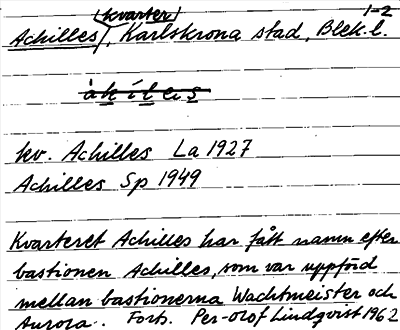 (kvarter) 1-2
Achilles, Karlskrona stad, Blek. l.
àkíleis
kv. Achilles La 1927
Achilles Sp 1949
Kvarteret Achilles har fått namn efter
bastionen Achilles, som var uppförd
mellan bastionerna Wachtmeister och
Aurora. Forts. Per-Olof Lindqvist 1962